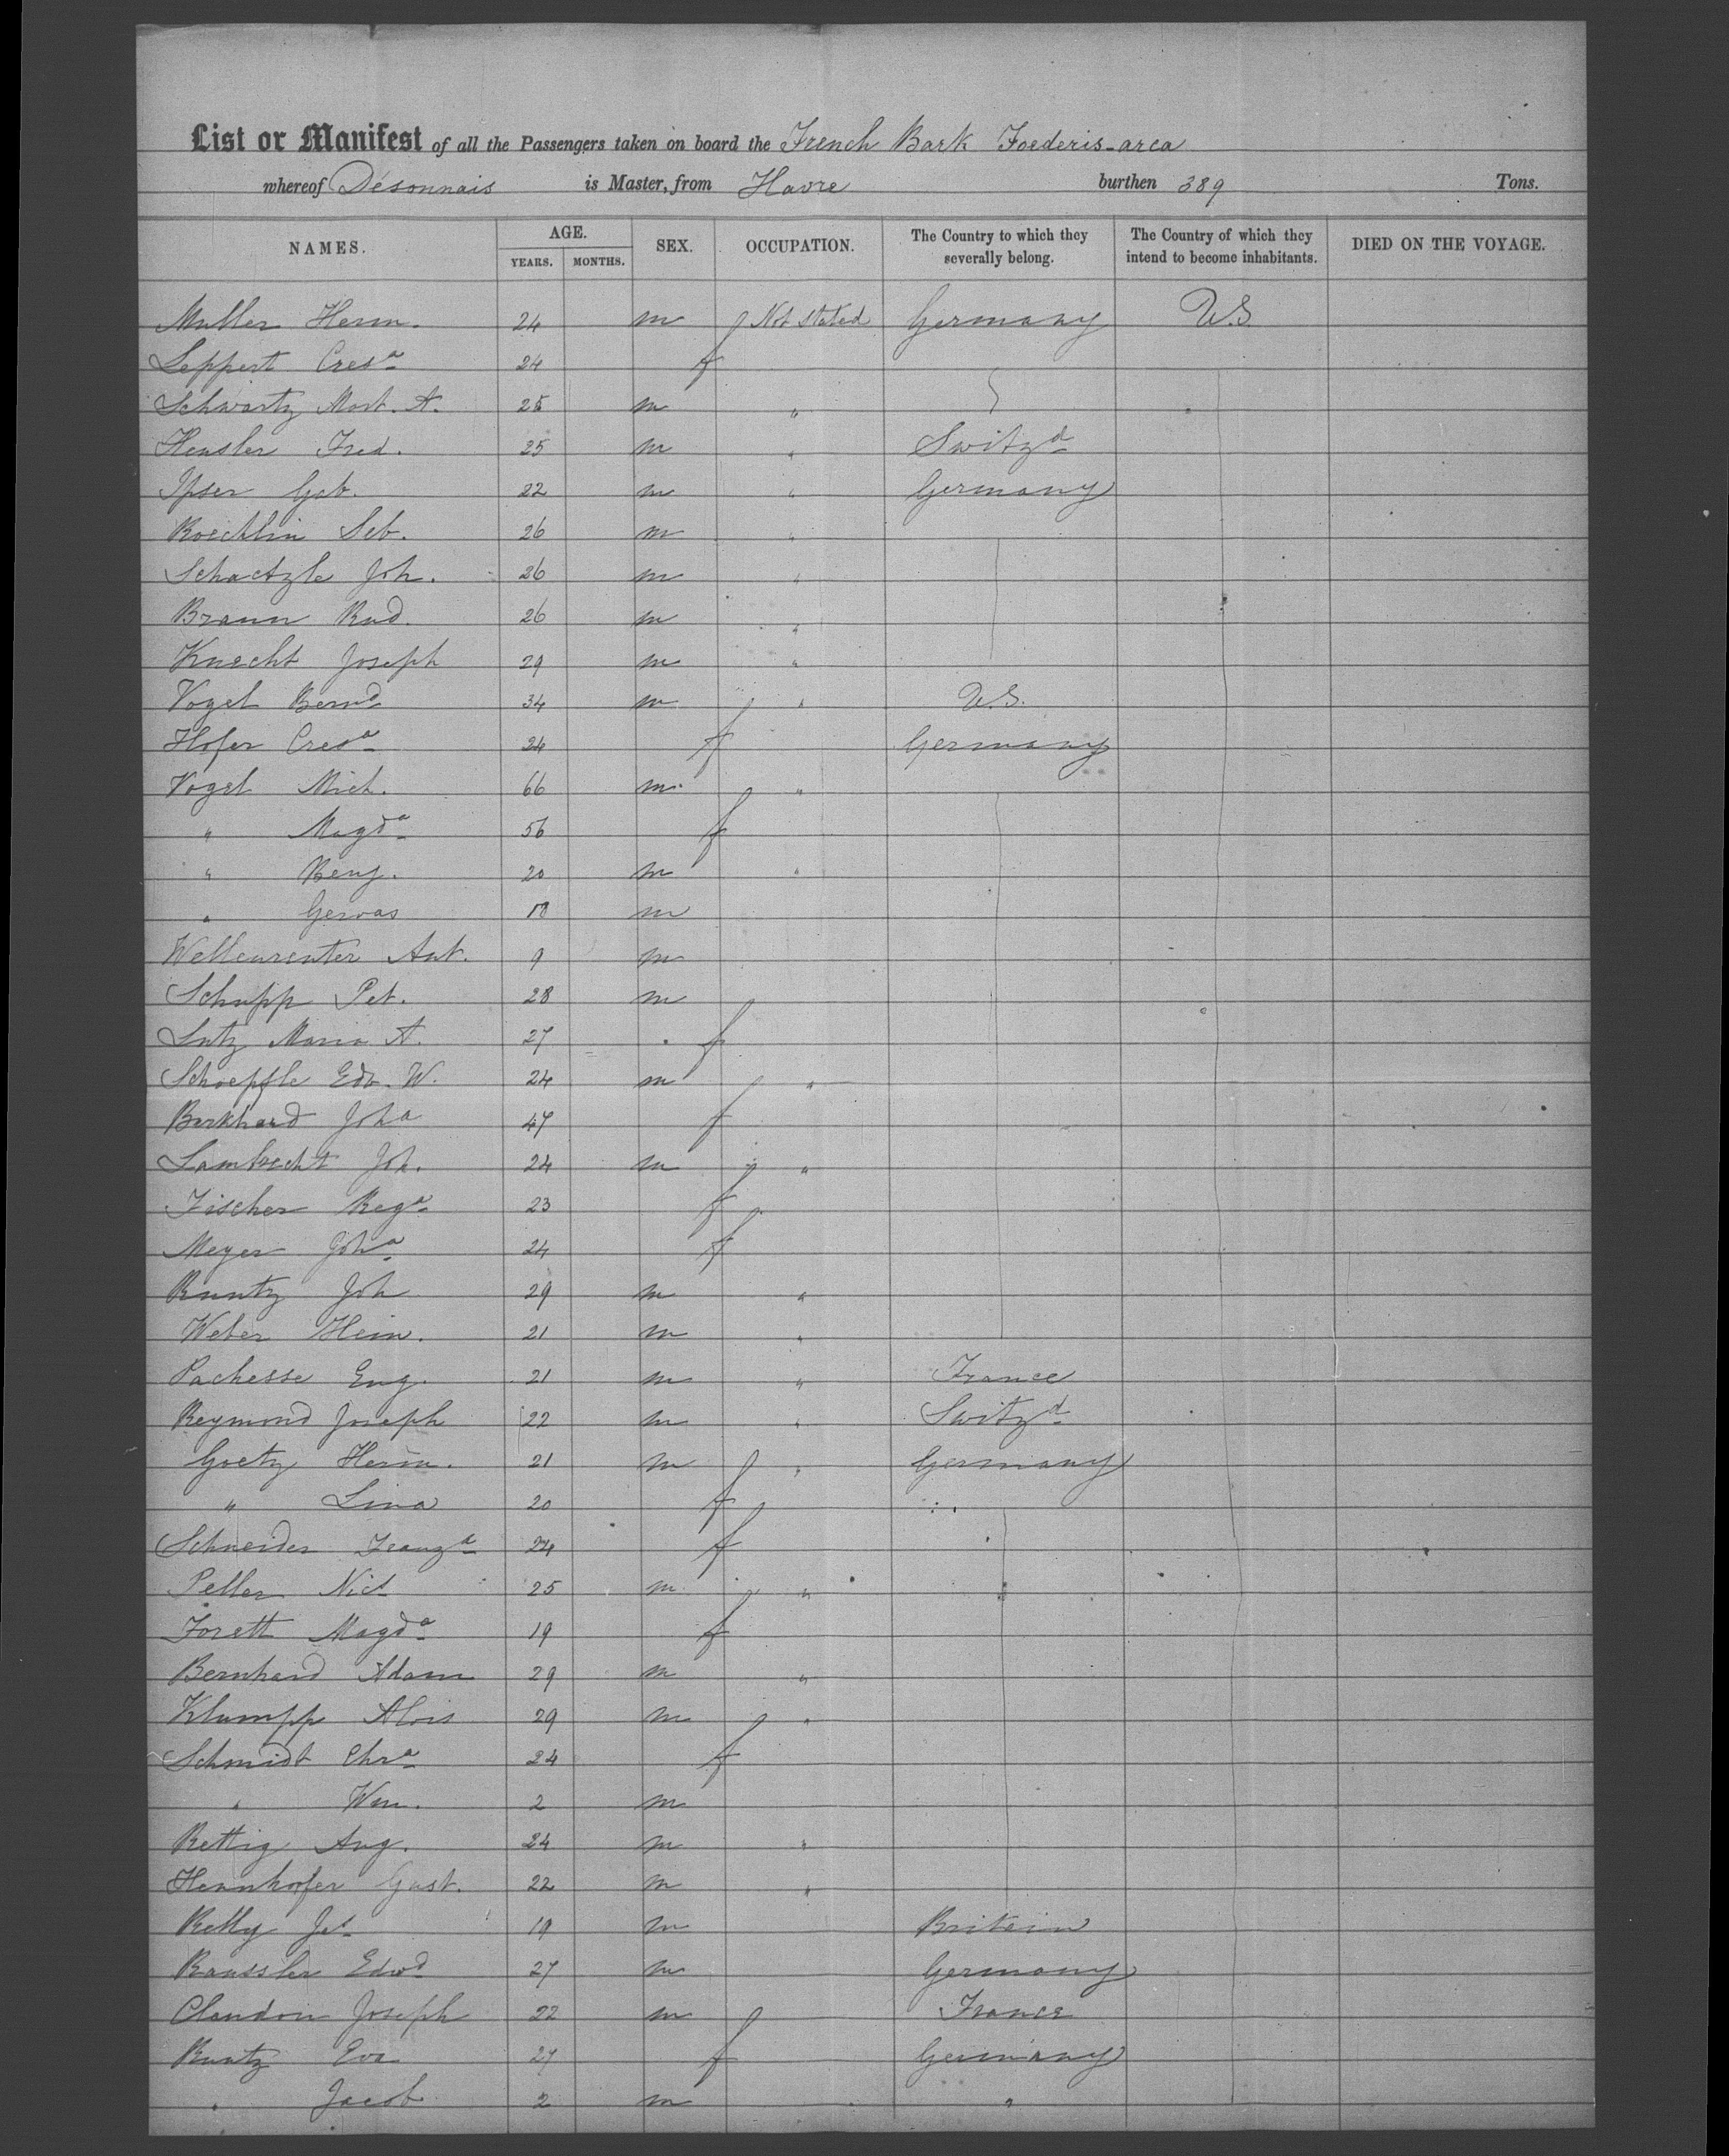 List or Manifest of all the Passengers taken on board the French Bark Foederis-arca
whereof Désonnais is Master, from Havre burthen 389 Tons.
NAMES. AGE. SEX. OCCUPATION. The Country to which they severally belong. The Country of which they intend to become inhabitants. DIED ON THE VOYAGE.
YEARS. MONTHS.
Muller Herm. 24 m Not stated Germany U.S.
Leppert Cresa 24 f
Schwartz Mart. A. 25 m "
Hensler Fred. 25 m " Switzd
Ipser Gab. 22 m " Germany
Koechlin Seb. 26 m "
Schaetzle Joh. 26 m "
Braun Rud. 26 m "
Knecht Joseph 29 m "
Vogel Bernd 34 m " U.S.
Hofer Cresa 24 f Germany
Vogel Mich. 66 m "
" Magda 56 f
" Benj. 20 m "
" Gervas 18 m
Wellenreuter Ant. 9 m
Schupp Pet. 28 m
Lutz Maria A. 27 f
Schoepfle Edw. W. 24 m "
Burkhard Joha 47 f
Lambrecht Joh. 24 m "
Fischer Rega 23 f
Meyer Joha 24 f
Kuntz Joh 29 m "
Weber Hein. 21 m "
Pachesse Eug. 21 m " France
Reymond Joseph 22 m " Switzd
Goetz Herm. 21 m " Germany
" Lina 20 f
Schneider Franza 24 f
Peller Nics 25 m "
Forett Magda 19 f
Bernhard Adam 29 m "
Klumpp Alois 29 m "
Schmidt Chra 24 f
" Wm. 2 m
Rettig Aug. 24 m "
Hennhofer Gust. 22 m "
Kelly Js 19 m Britain
Raussler Edwd 27 m Germany
Claudon Joseph 22 m France
Kuntz Eva 27 f Germany
" Jacob 2 m "